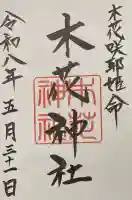 木花咲耶姫命
木花神社
木花
神社
令和八年五月三十一日